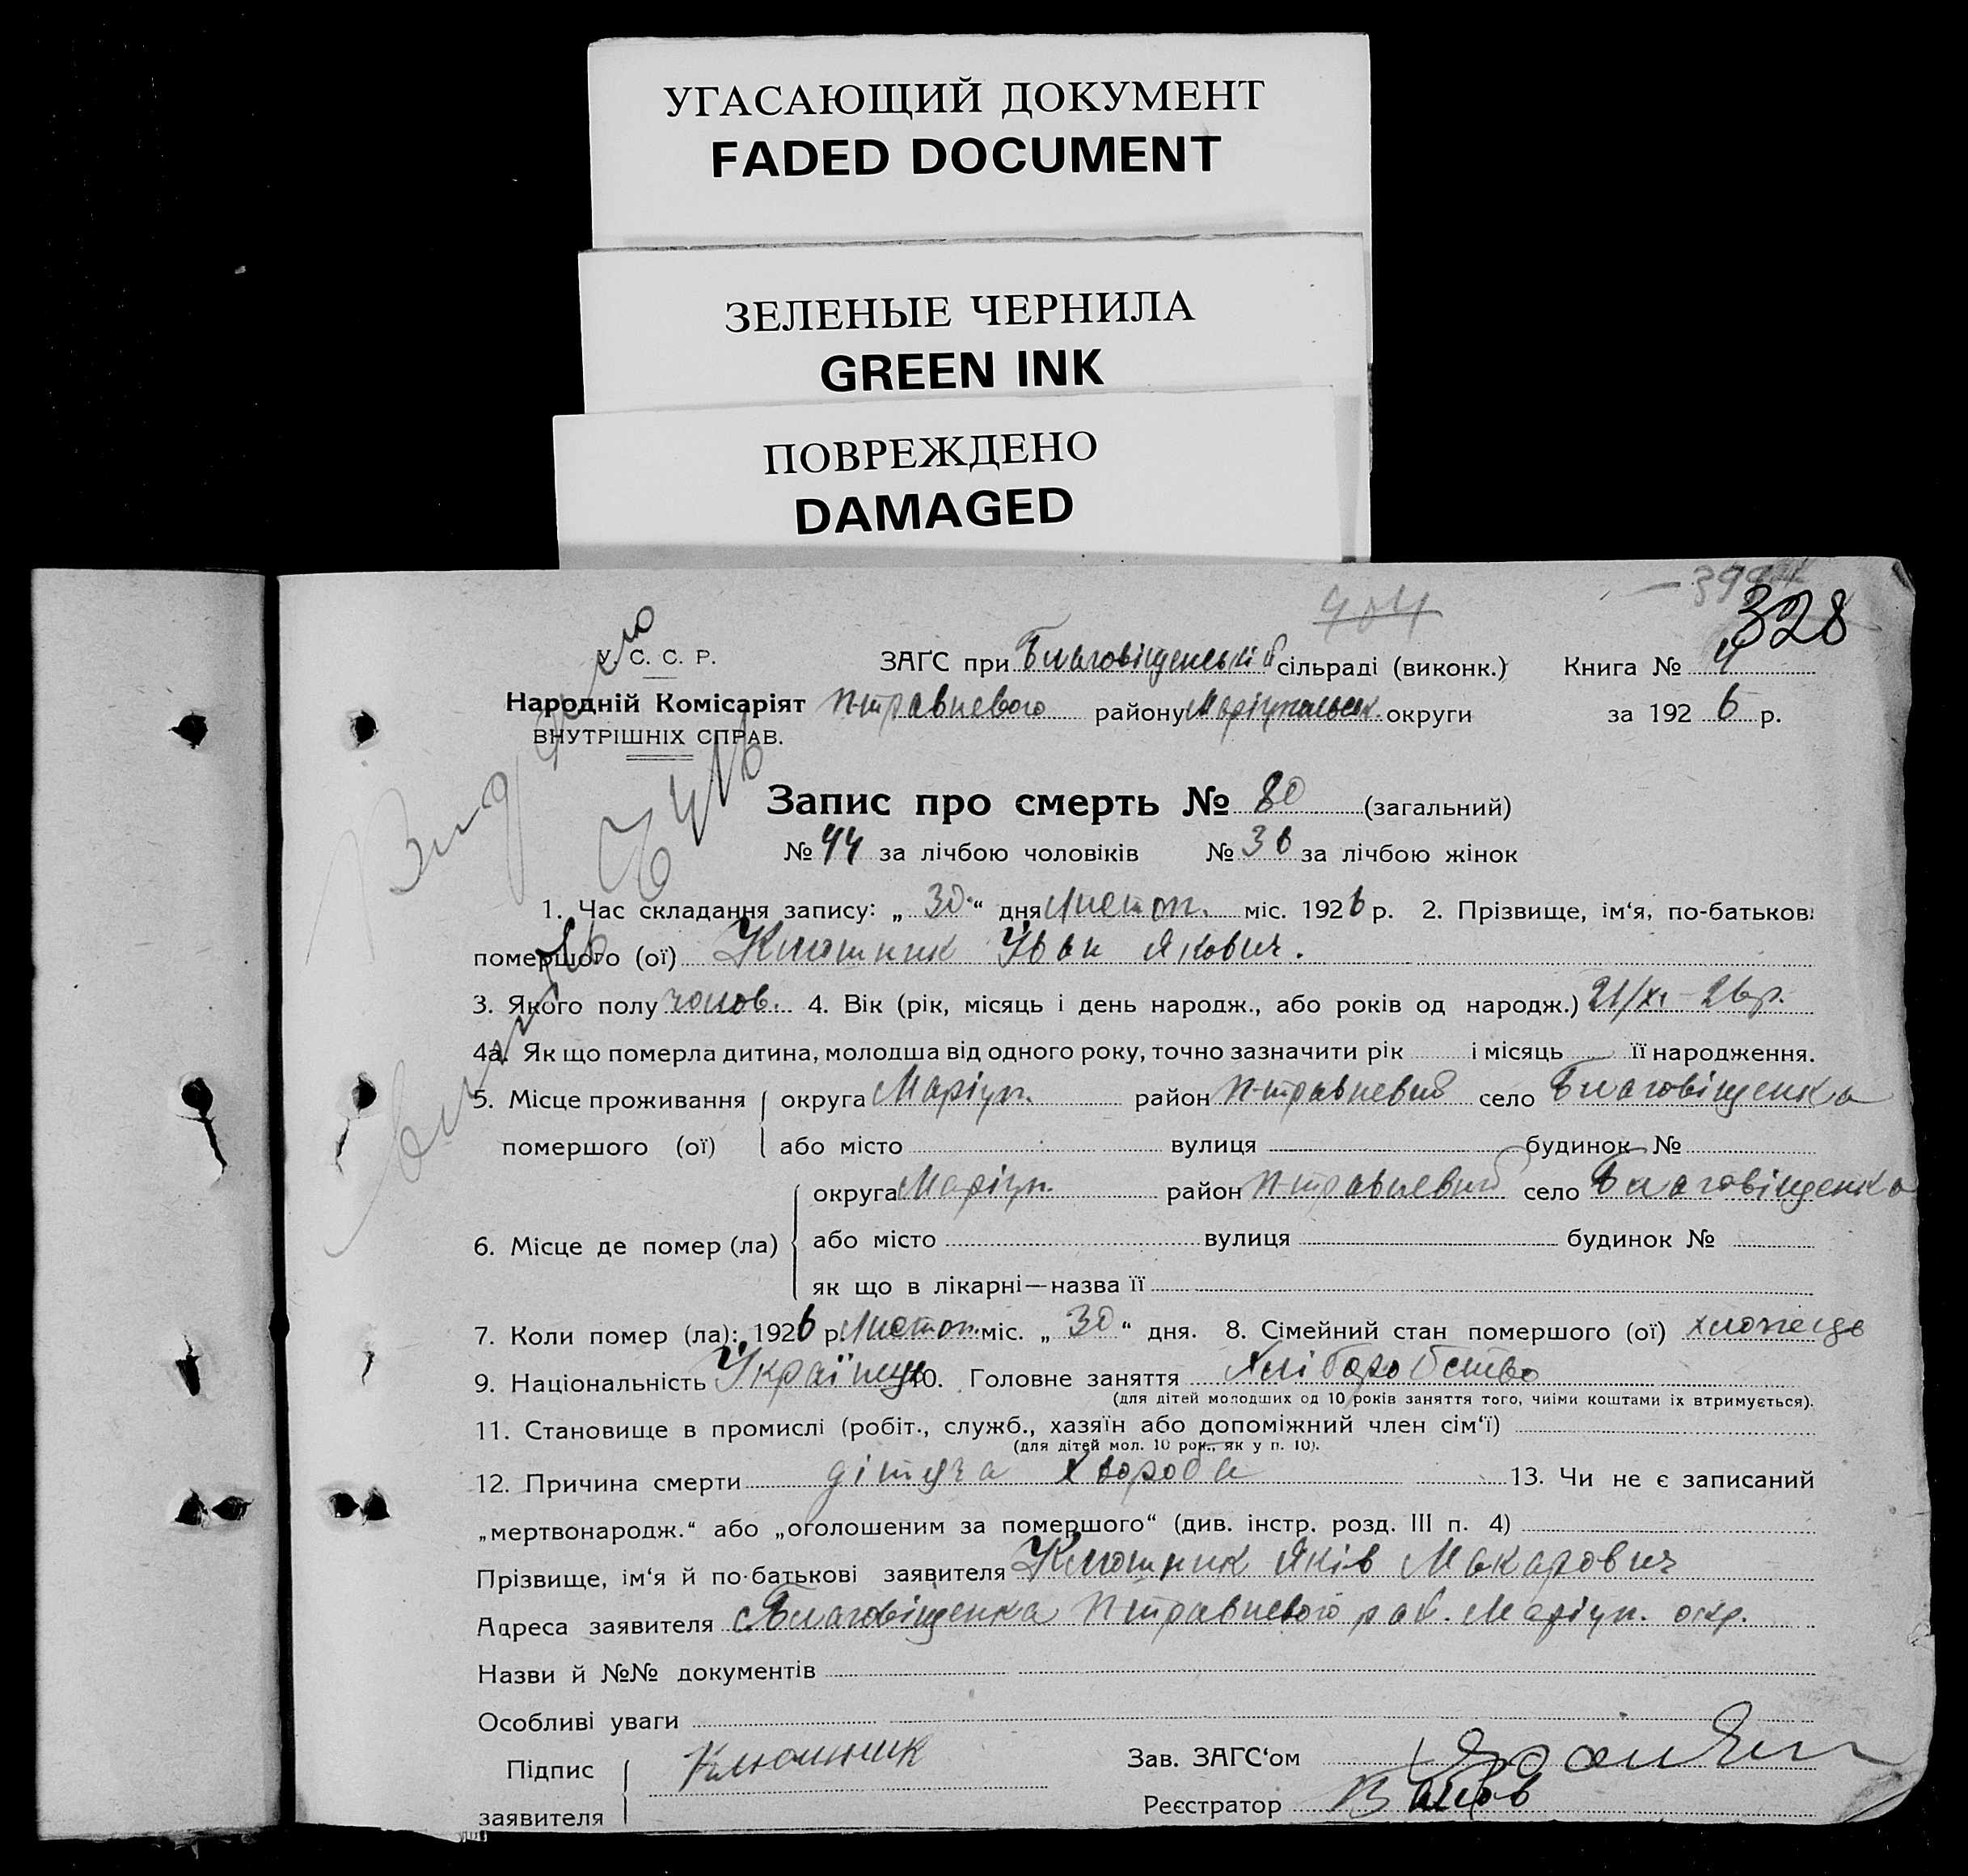 УГАСАЮЩИЙ ДОКУМЕНТ
FADED DOCUMENT
ЗЕЛЕНЫЕ ЧЕРНИЛА
GREEN INK
ПОВРЕЖДЕНО
DAMAGED
404
328
У. С. С. Р. ЗАҐС при Благовіщенській сільраді (виконк.) Книга № 4
Народній Комісаріят п-травневого району Маріупольськ. округи за 1926 р.
ВНУТРІШНІХ СПРАВ.
Запис про смерть № 80 (загальний)
№ 44 за лічбою чоловіків № 36 за лічбою жінок
1. Час складання запису: „ 30 “ дня Листоп. міс. 1926 р. 2. Прізвище, ім‘я, по-батькові
помершого (ої) Клюшник Іван Якович.
3. Якого полу чолов. 4. Вік (рік, місяць і день народж., або років од народж.) 21/XI – 26 р.
4а. Як що померла дитина, молодша від одного року, точно зазначити рік і місяць її народження.
5. Місце проживання округа Маріуп. район п-травневий село Благовіщенка
помершого (ої) або місто вулиця будинок №
округа Маріуп. район п-травневий село Благовіщенка
6. Місце де помер (ла) або місто вулиця будинок №
як що в лікарні—назва її
7. Коли помер (ла): 1926 р. Листоп. міс. „ 30 “ дня. 8. Сімейний стан помершого (ої) хлопець
9. Національність Українець 10. Головне заняття Хліборобство
(для дітей молодших од 10 років заняття того, чиїми коштами їх втримується).
11. Становище в промислі (робіт., служб., хазяїн або допоміжний член сім‘ї)
(для дітей мол. 10 рок., як у п. 10).
12. Причина смерти дітяча хвороба 13. Чи не є записаний
„мертвонародж.“ або „оголошеним за помершого“ (див. інстр. розд. III п. 4)
Прізвище, ім‘я й по-батькові заявителя Клюшник Яків Макарович
Адреса заявителя с. Благовіщенка п-травневого рай. Маріуп. окр.
Назви й №№ документів
Особливі уваги
Підпис Клюшник Зав. ЗАҐС‘ом
заявителя Реєстратор